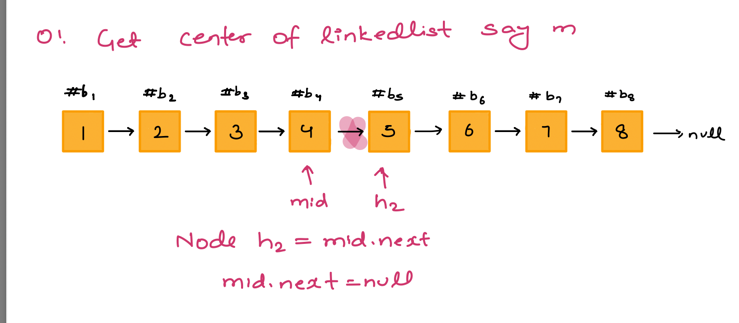 01. Get center of linkedlist say m
#b1 #b2 #b3 #b4 #b5 #b6 #b7 #b8
1 → 2 → 3 → 4 → 5 → 6 → 7 → 8 → null
↑ ↑
mid h2
Node h2 = mid.next
mid.next = null